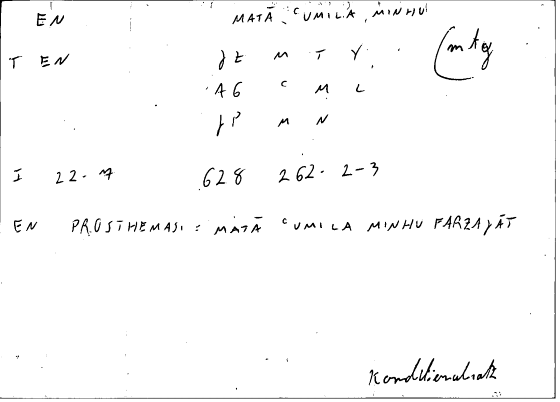 EN MATĀ ʿUMILA MINHU
T EN ɣE M T Y (mtq
AG C M L
ɣP M N
I 22-7 628 262. 2-3
EN PROSTHEMASI = MATĀ ʿUMILA MINHU FARZAɣĀT
Konditionalsatz